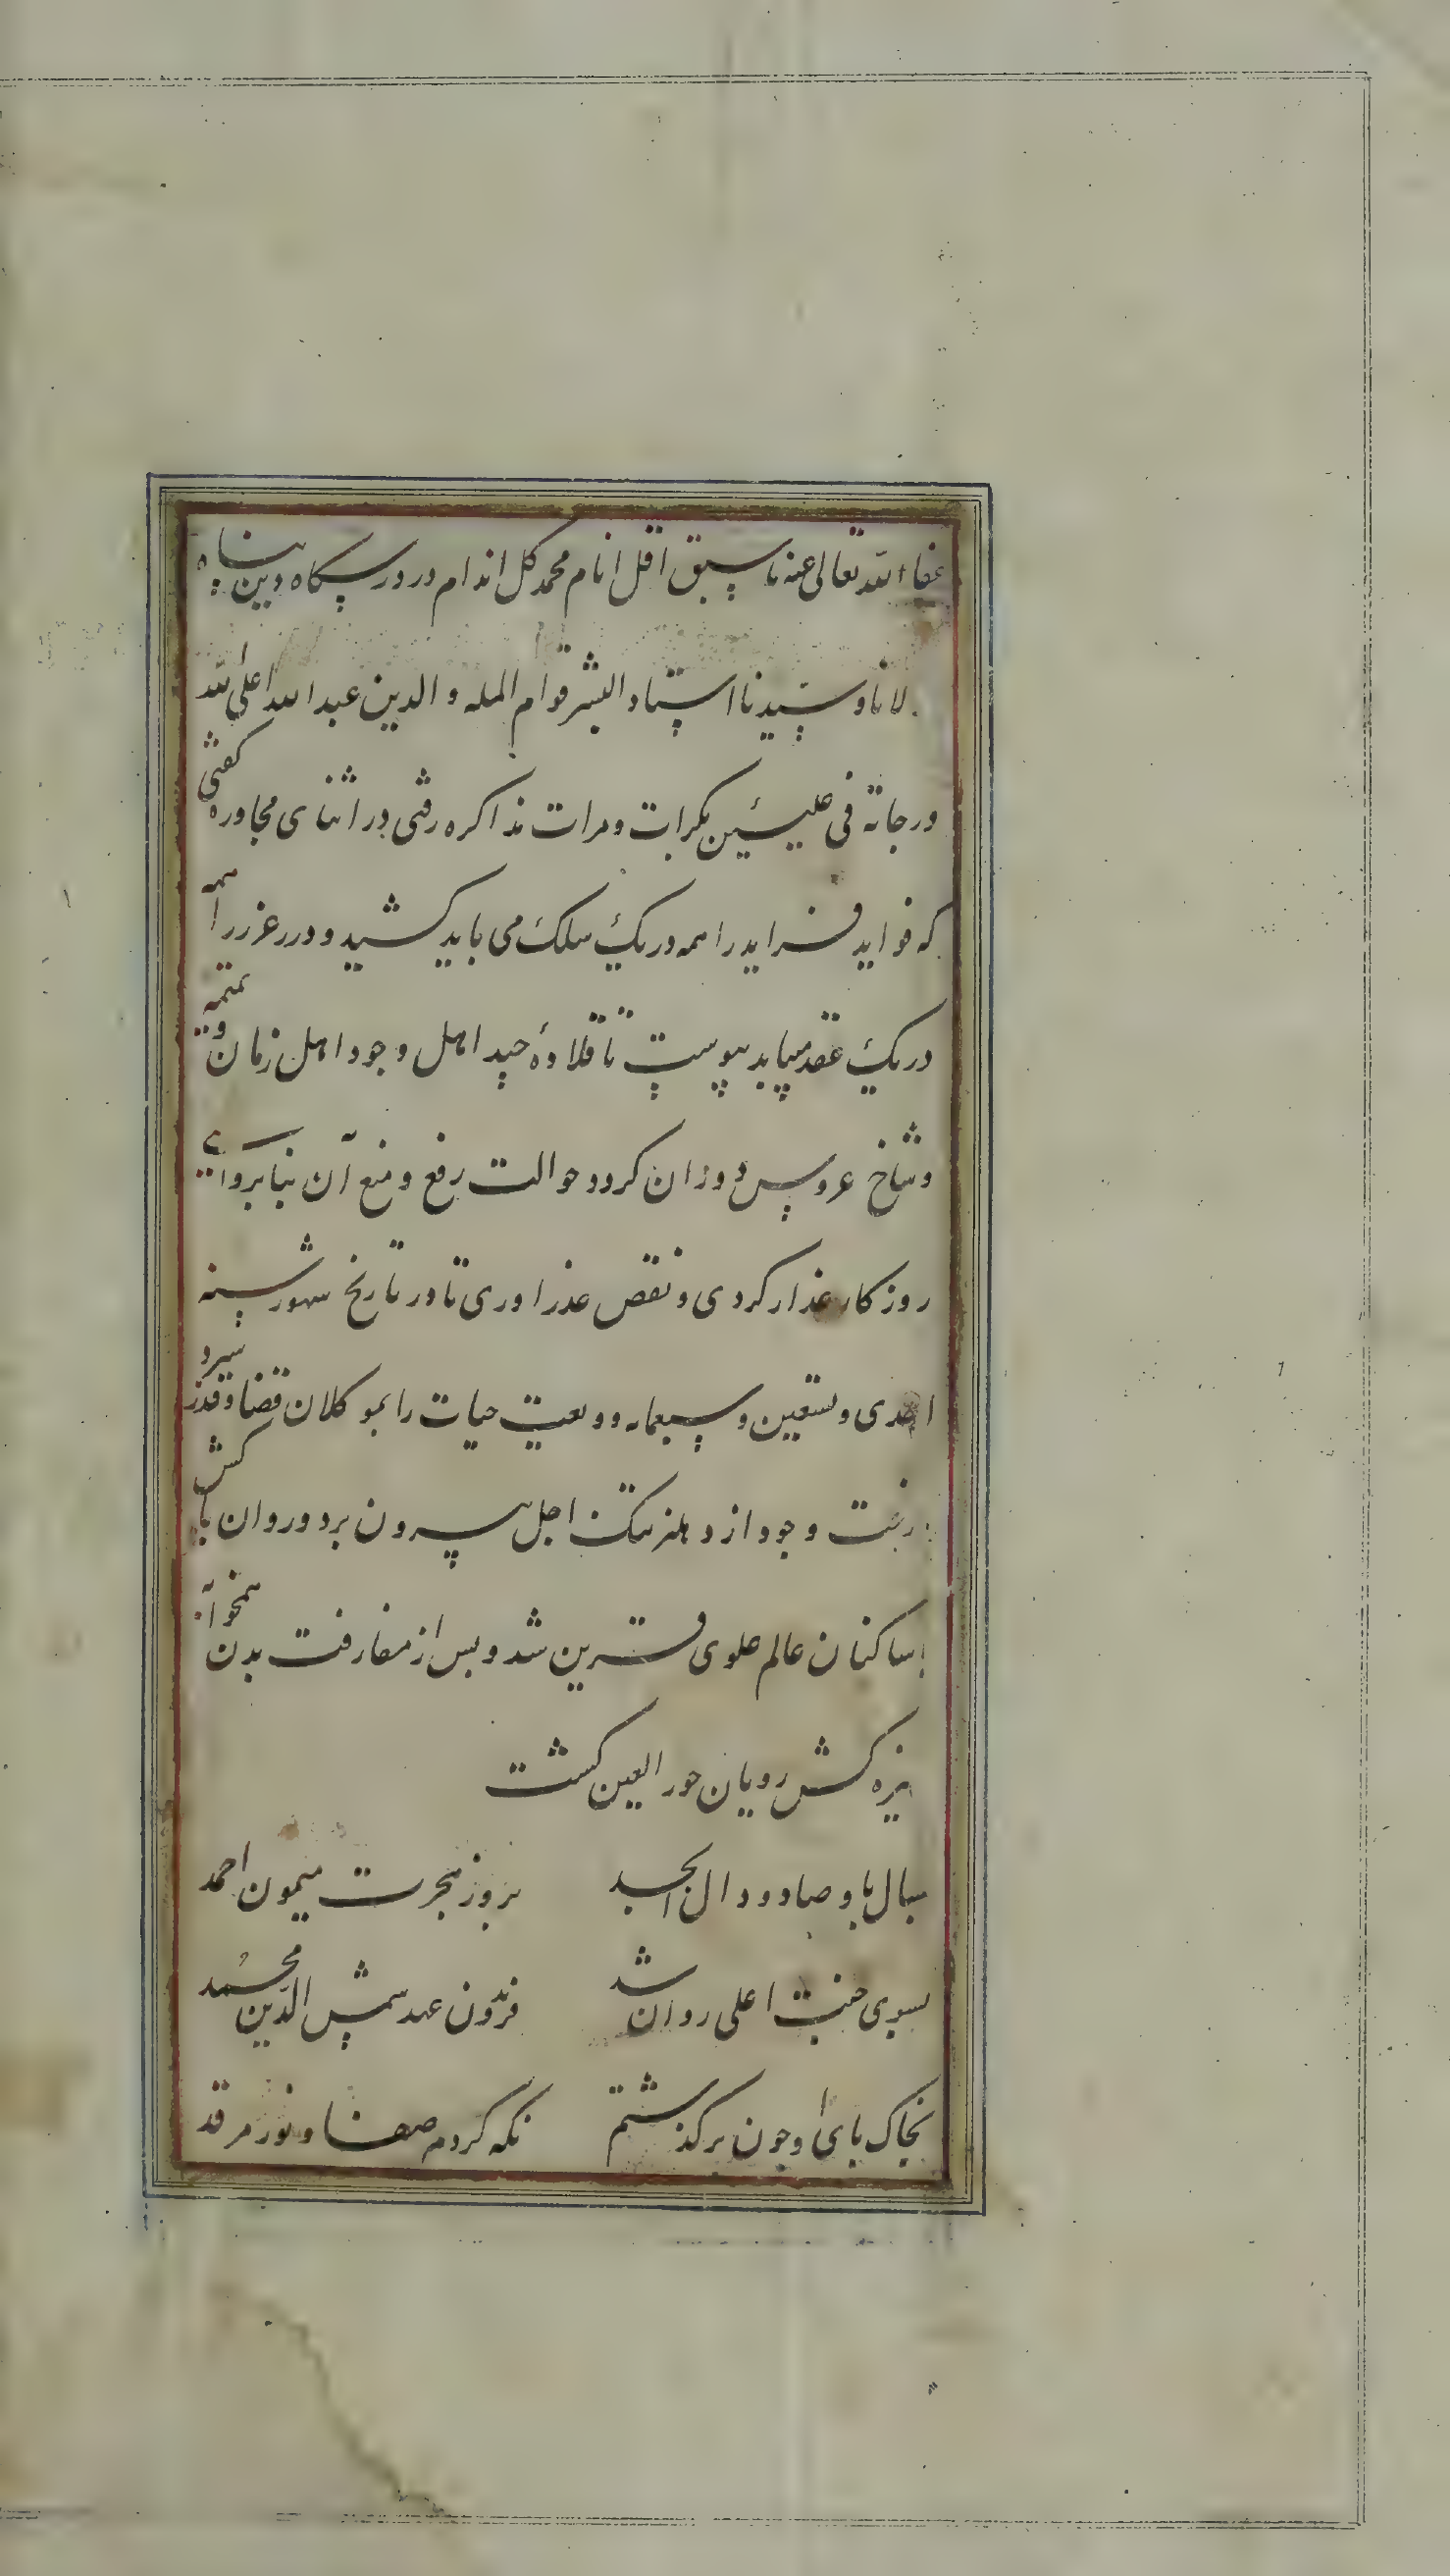 عفا الله تعالی عنه ما سبق اقل انام محمد کل اندام در درسکاه دین پناه
لانا و سیدنا استاد البشر قوام المله و الدین عبدالله اعلی الله
درجاته فی علیین بکرات و مرات مذاکره رفتی در اثنای مجاوره کفتی
که فواید فراید را همه در یک سلک می باید کشید و درر غرر را همه
در یک عقد میباید پیوست تا قلاده جید اهل وجود اهل زمان و تمیمه
وشاخ عروس دوران کردد حوالت رفع و منع آن بنابروایی
روزکار غدار کردی و نقص عذر اوری تا در تاریخ شهور سنه
احدی و تسعین و سبعمایه و ودیعت حیات را بموکلان قضا و قدر سپرد
رخت وجود از دهلیز تنک اجل بیرون برد و روان پاکش
با ساکنان عالم علوی قرین شد و پس از مفارقت بدن همخوابه
پاکیزه کش رویان حور العین کشت
بسال با و صاد و دال ابجد بروز هجرت میمون احمد
بسوی جنت اعلی روان شد فریدون عهد شمس الدین محمد
بخاک پای او چون برکذشتم نکه کردم صفا و نور مرقد